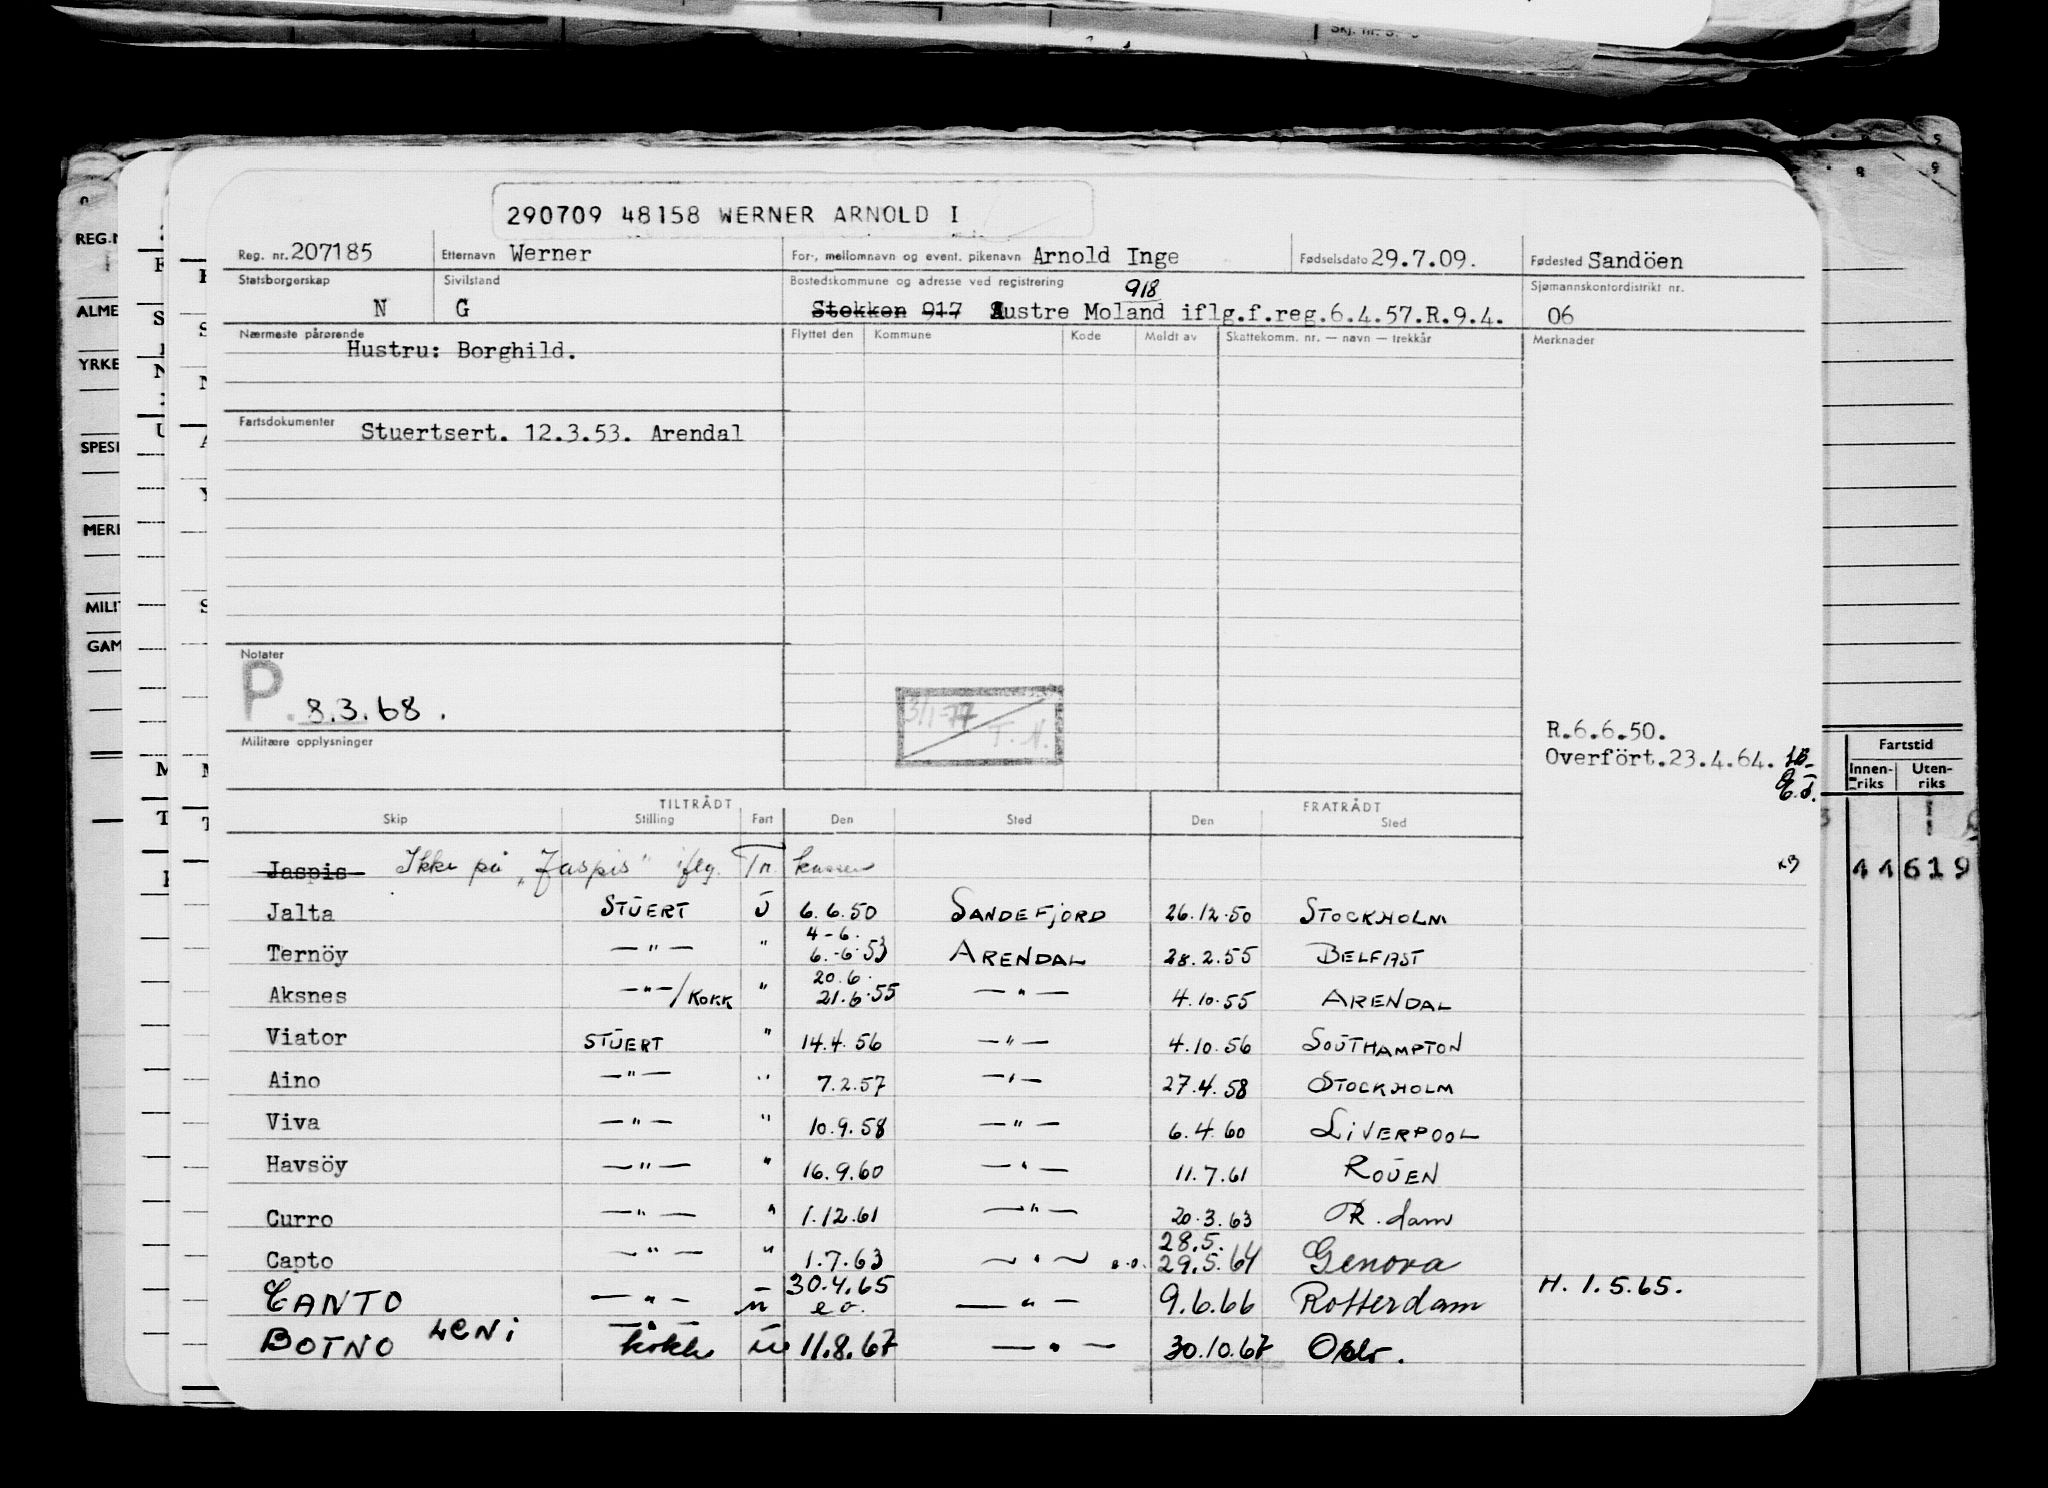 Skj. nr. 5.
290709 48158 WERNER ARNOLD I
Reg. nr. 207185 Etternavn Werner For-, mellomnavn og event. pikenavn Arnold Inge Fødselsdato 29.7.09. Fødested Sandöen
Statsborgerskap N Sivilstand G Bostedskommune og adresse ved registrering Sjømannskontordistrikt nr. 06
918
Stokken 917 Austre Moland iflg.f.reg.6.4.57.R.9.4.
Nærmeste pårørende Hustru: Borghild.
Flyttet den Kommune Kode Meldt av Skattekomm. nr. — navn — trekkår Merknader
Fartsdokumenter Stuertsert. 12.3.53. Arendal
Notater
P. 8.3.68.
3/1-77 T. N.
Militære opplysninger
R.6.6.50.
Overfört.23.4.64.
TILTRÅDT FRATRÅDT
Skip Stilling Fart Den Sted Den Sted
Jaspis Ikke på "Jaspis" iflg. Tr. kassen
Jalta STUERT U 6.6.50 SANDEFJORD 26.12.50 STOCKHOLM
4-6.
Ternöy —"— " 6.-6.53 ARENDAL 28.2.55 BELFAST
20.6.
Aksnes —"—/KOKK " 21.6.55 —"— 4.10.55 ARENDAL
Viator STUERT " 14.4.56 —"— 4.10.56 SOUTHAMPTON
Aino —"— " 7.2.57 —"— 27.4.58 STOCKHOLM
Viva —"— " 10.9.58 —"— 6.4.60 LIVERPOOL
Havsöy —"— " 16.9.60 —"— 11.7.61 ROUEN
Curro —"— " 1.12.61 —"— 20.3.63 R.dam
28.5.
Capto —"— " 1.7.63 —"— e.o. 29.5.64 Genova
CANTO —"— u 30.4.65 e.o. —"— 9.6.66 Rotterdam H. 1.5.65.
BOTNO LENI —"— kokk u 11.8.67 —"— 30.10.67 Oslo.
REG.N
ALME
YRKE
SPESI
MERI
MILIT
GAM
Fartstid
Innen-riks Uten-riks
44 619